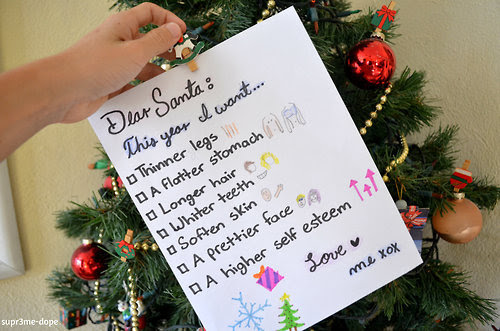 Dear Santa:
This year I want...
Thinner legs
A flatter stomach
Longer hair
Whiter teeth
Soften skin
A prettier face
A higher self esteem
Love
me xox
supr3me-dope